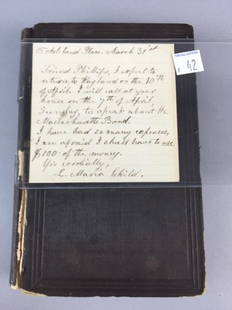 Ashland Place. March 31st
Friend Phillips, I expect to
return to Wayland on the 10th
of April. I will call at your
house on the 7th of April,
Sunday, to speak about the
Massachusetts Bond.
I have had so many expenses,
I am afraid I shall have to use
$100 of the money.
Yrs cordially,
L. Maria Child.
42